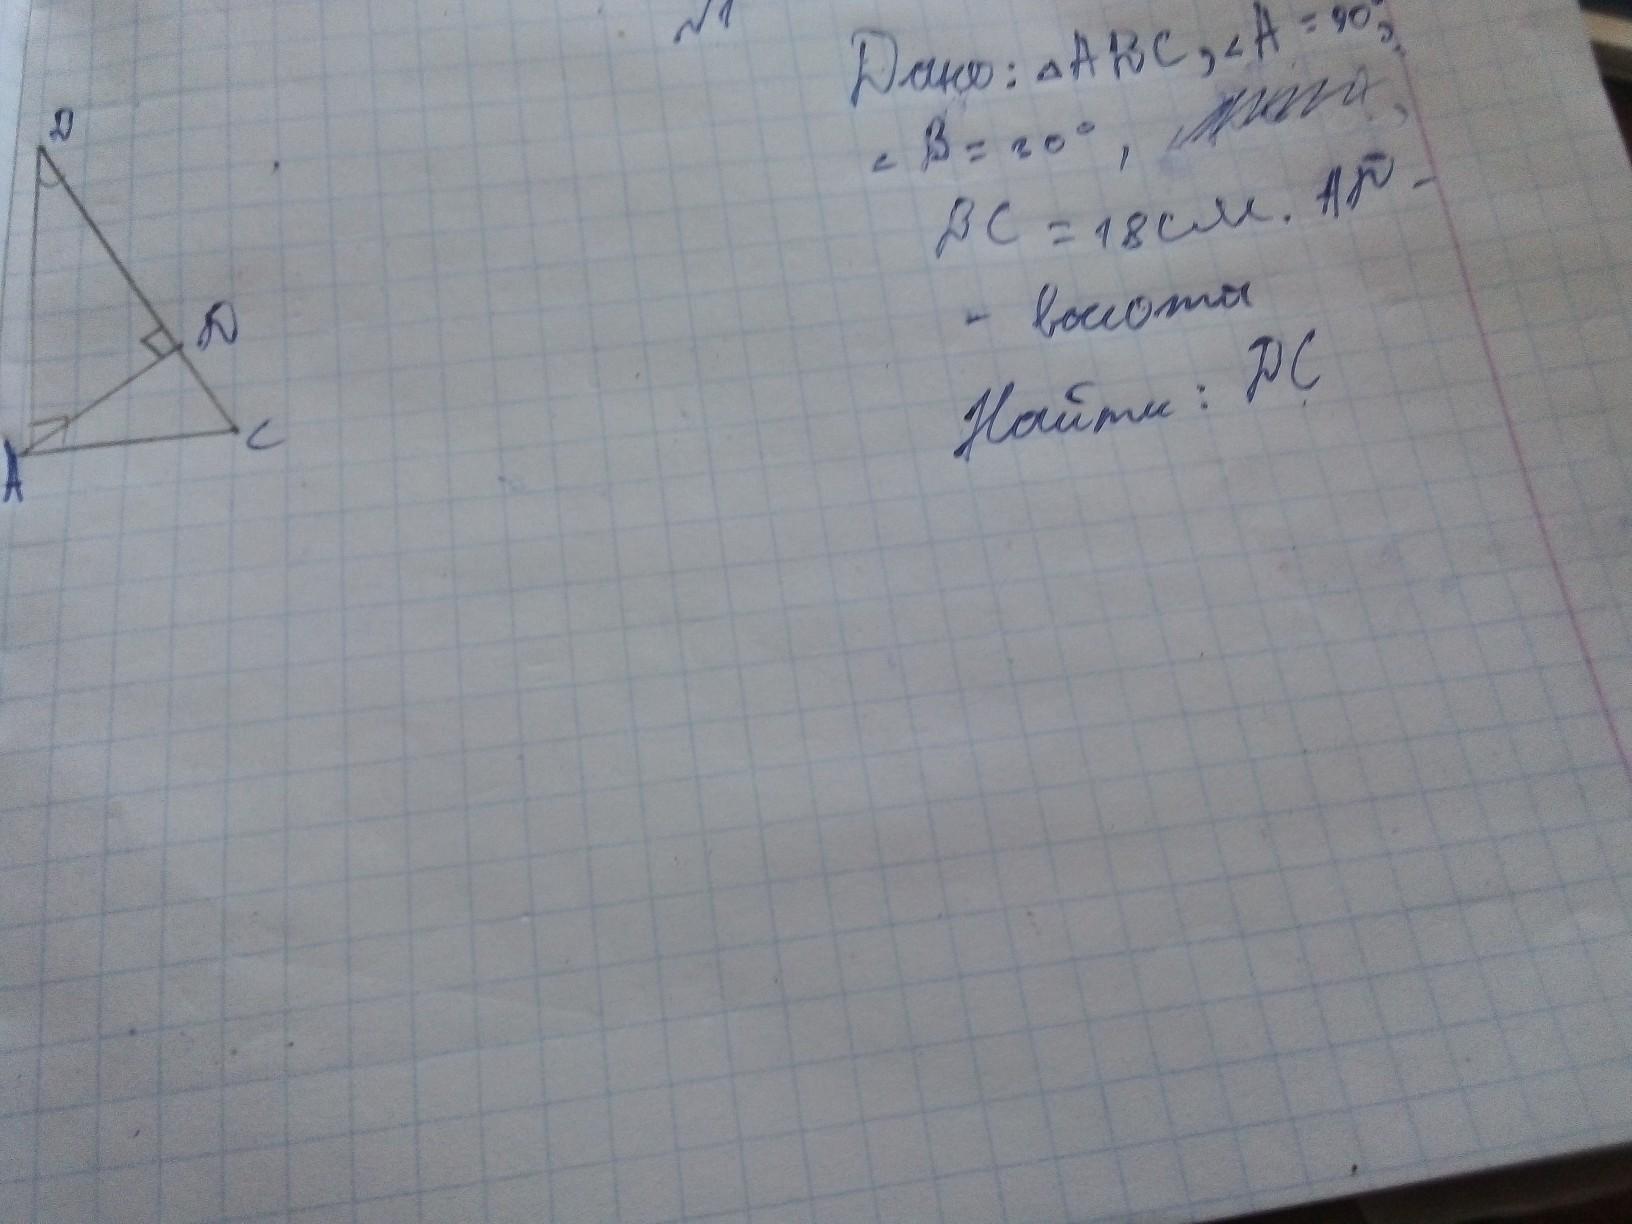 №1
Дано: △ABC, ∠A = 90°,
∠B = 30°,
BC = 18 см. AD -
- высота
Найти: DC
B
D
A
C